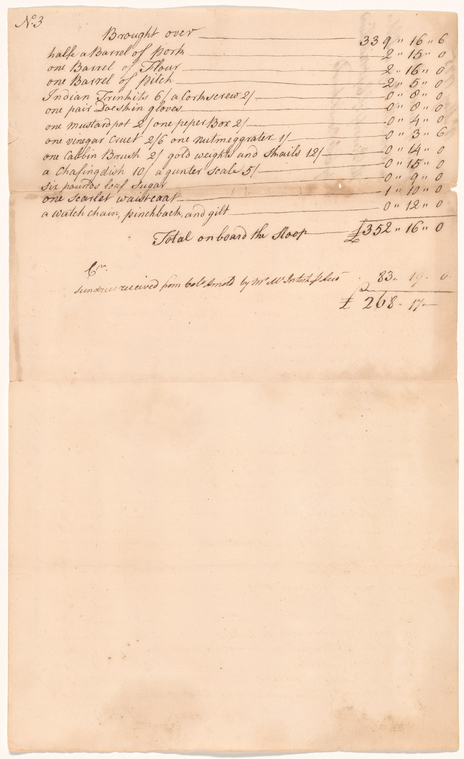 No. 3
Brought over 339 " 16 " 6
half a Barrel of Pork 2 " 15 " 0
one Barrel of Flour 2 " 16 " 0
one Barrel of Pitch 2 " 5 " 0
Indian Trinkits 6/ a Corkscrew 2/ 0 " 8 " 0
one pair Doeskin gloves 0 " 8 " 0
one mustard pot 2/ one peper Box 2/ 0 " 4 " 0
one vinegar Cruet 2/6 one nutmiggrater 1/ 0 " 3 " 6
one Cabbin Brush 2/ gold weights and Skails 12/ 0 " 14 " 0
a Chafingdish 10/ a gunter Scale 5/ 0 " 15 " 0
six pounds loaf Sugar 0 " 9 " 0
one Scarlet waistcoat 1 " 10 " 0
a watch chain, pinchback, and gilt 0 " 12 " 0
Total on board the Sloop £352 " 16 " 0
Cr.
Sundries received from Colo. Arnold by Mr. 83 " 19 " 0
£ 268 " 17 "